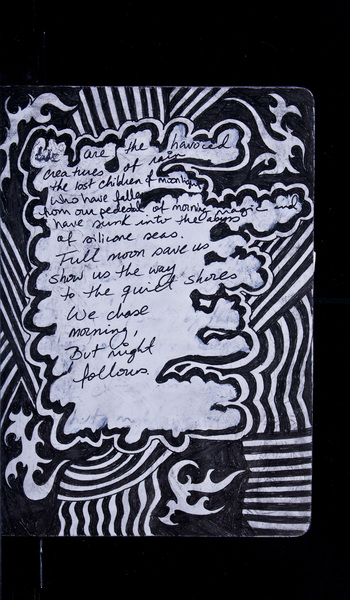 We are the havoced
creatures of rain
the lost children of moonlight
who have fallen
from our pedestal of morning magic and
have sunk into the abyss
of silicone seas.
Full moon save us
show us the way
to the quiet shores
We chase
morning,
But night
follows.